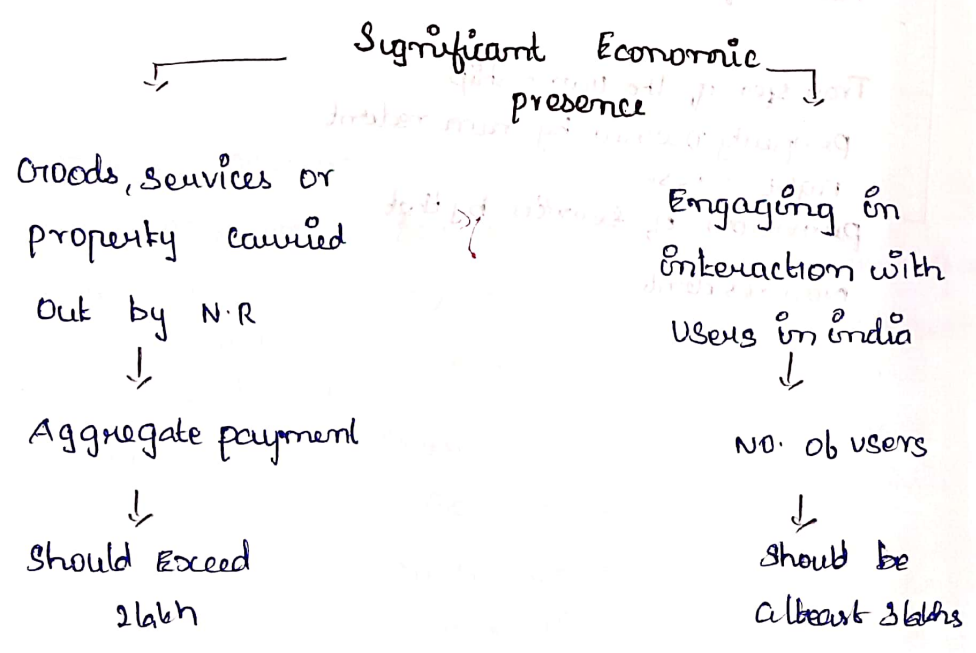 Significant Economic
presence
Goods, Services or
property carried
out by N.R
Aggregate payment
Should Exceed
2 lakh
Engaging in
interaction with
users in india
No. of users
Should be
atleast 3 lakhs